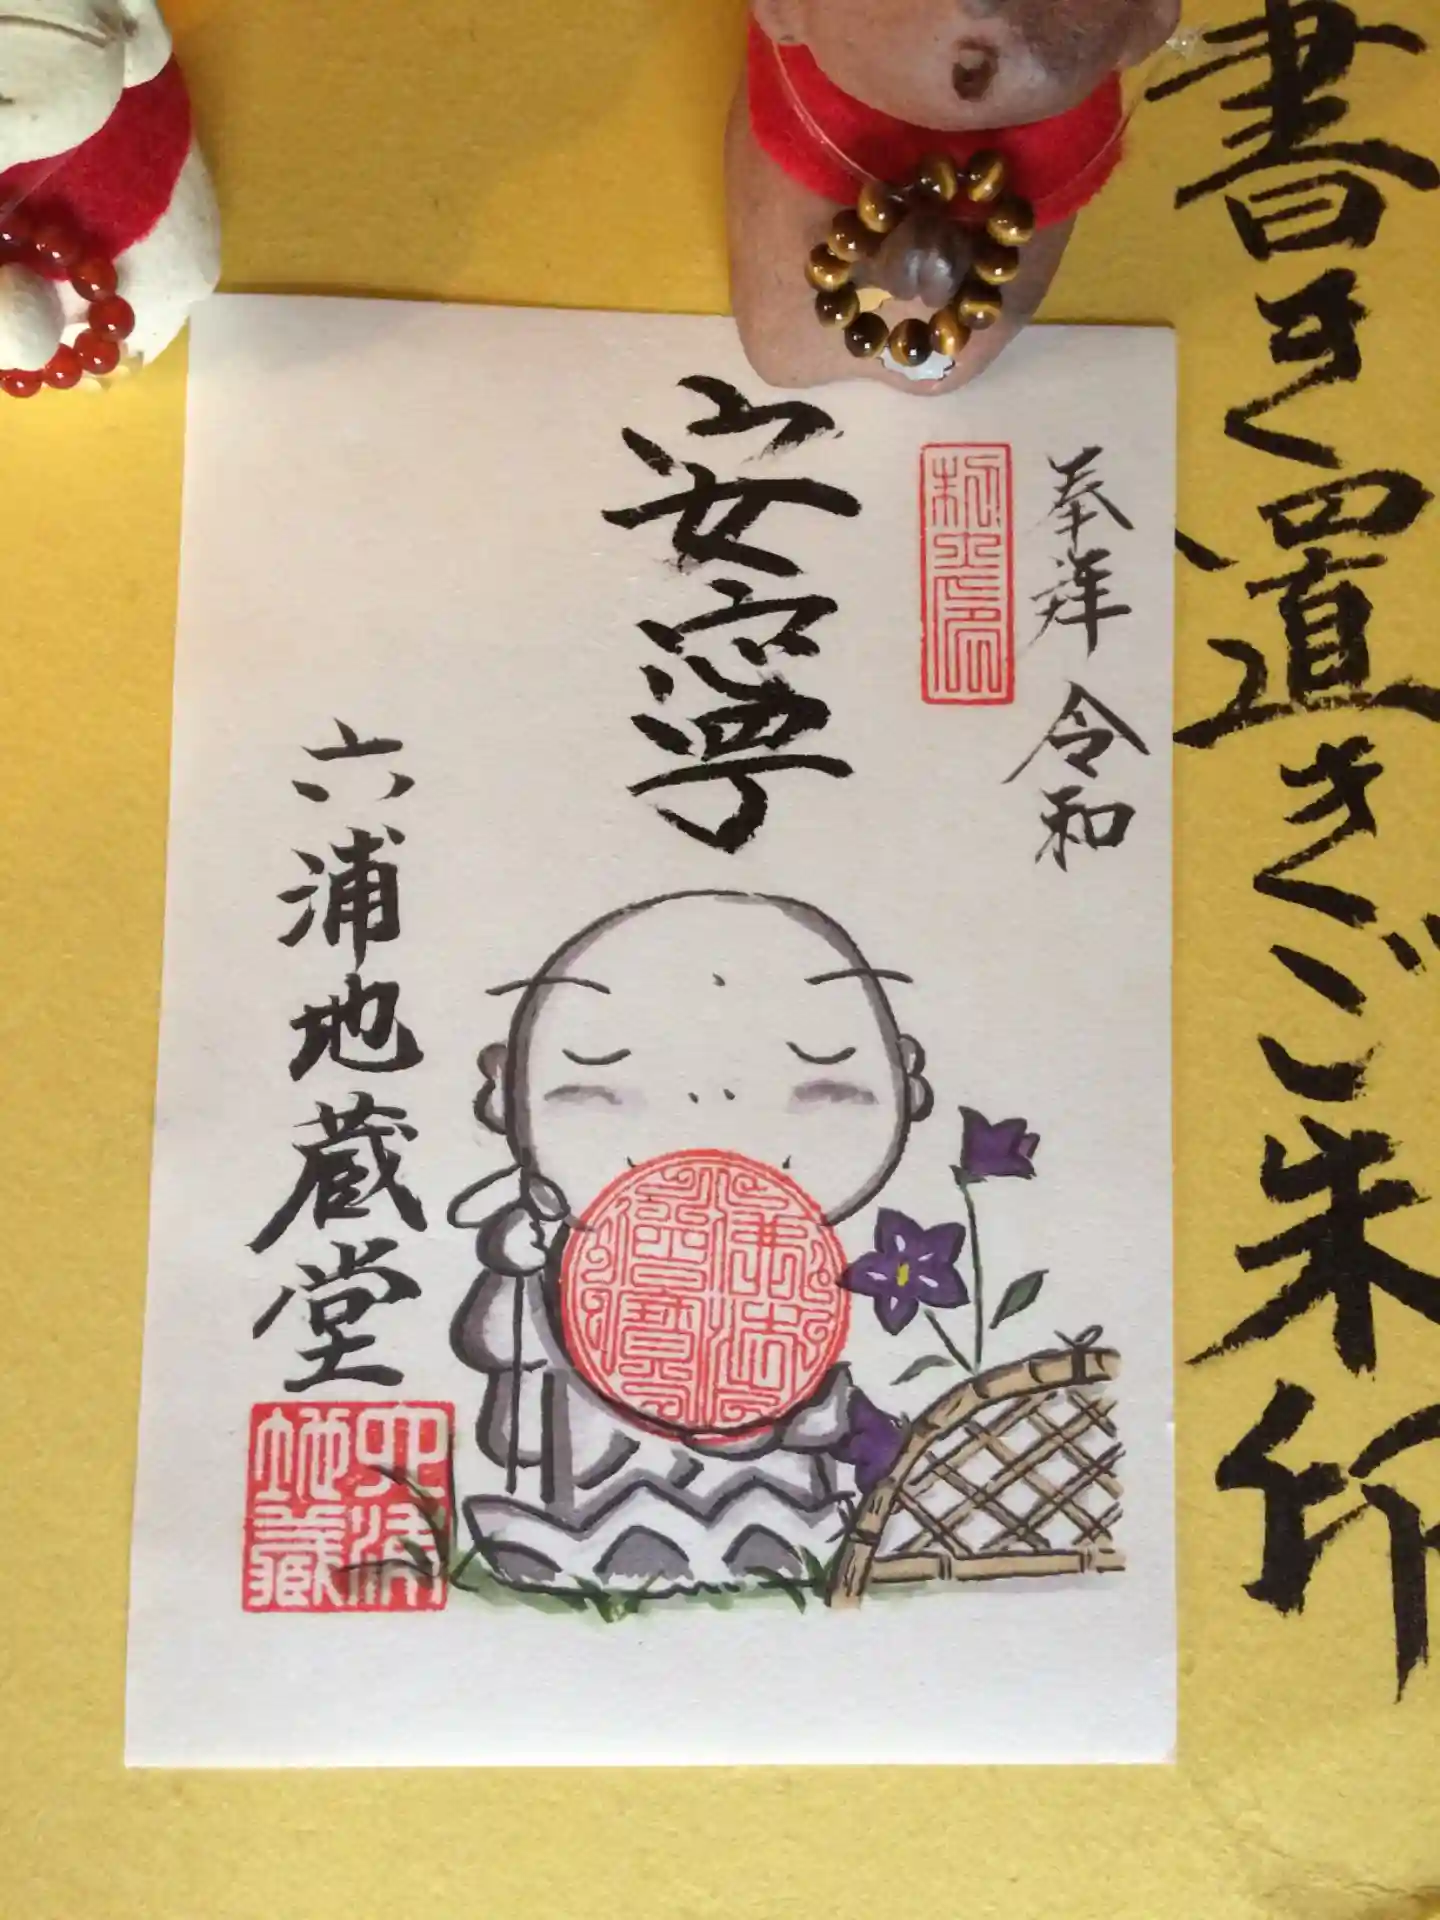 書き置きご朱印
奉拝 令和
安寧
六浦地蔵堂
六浦
地蔵